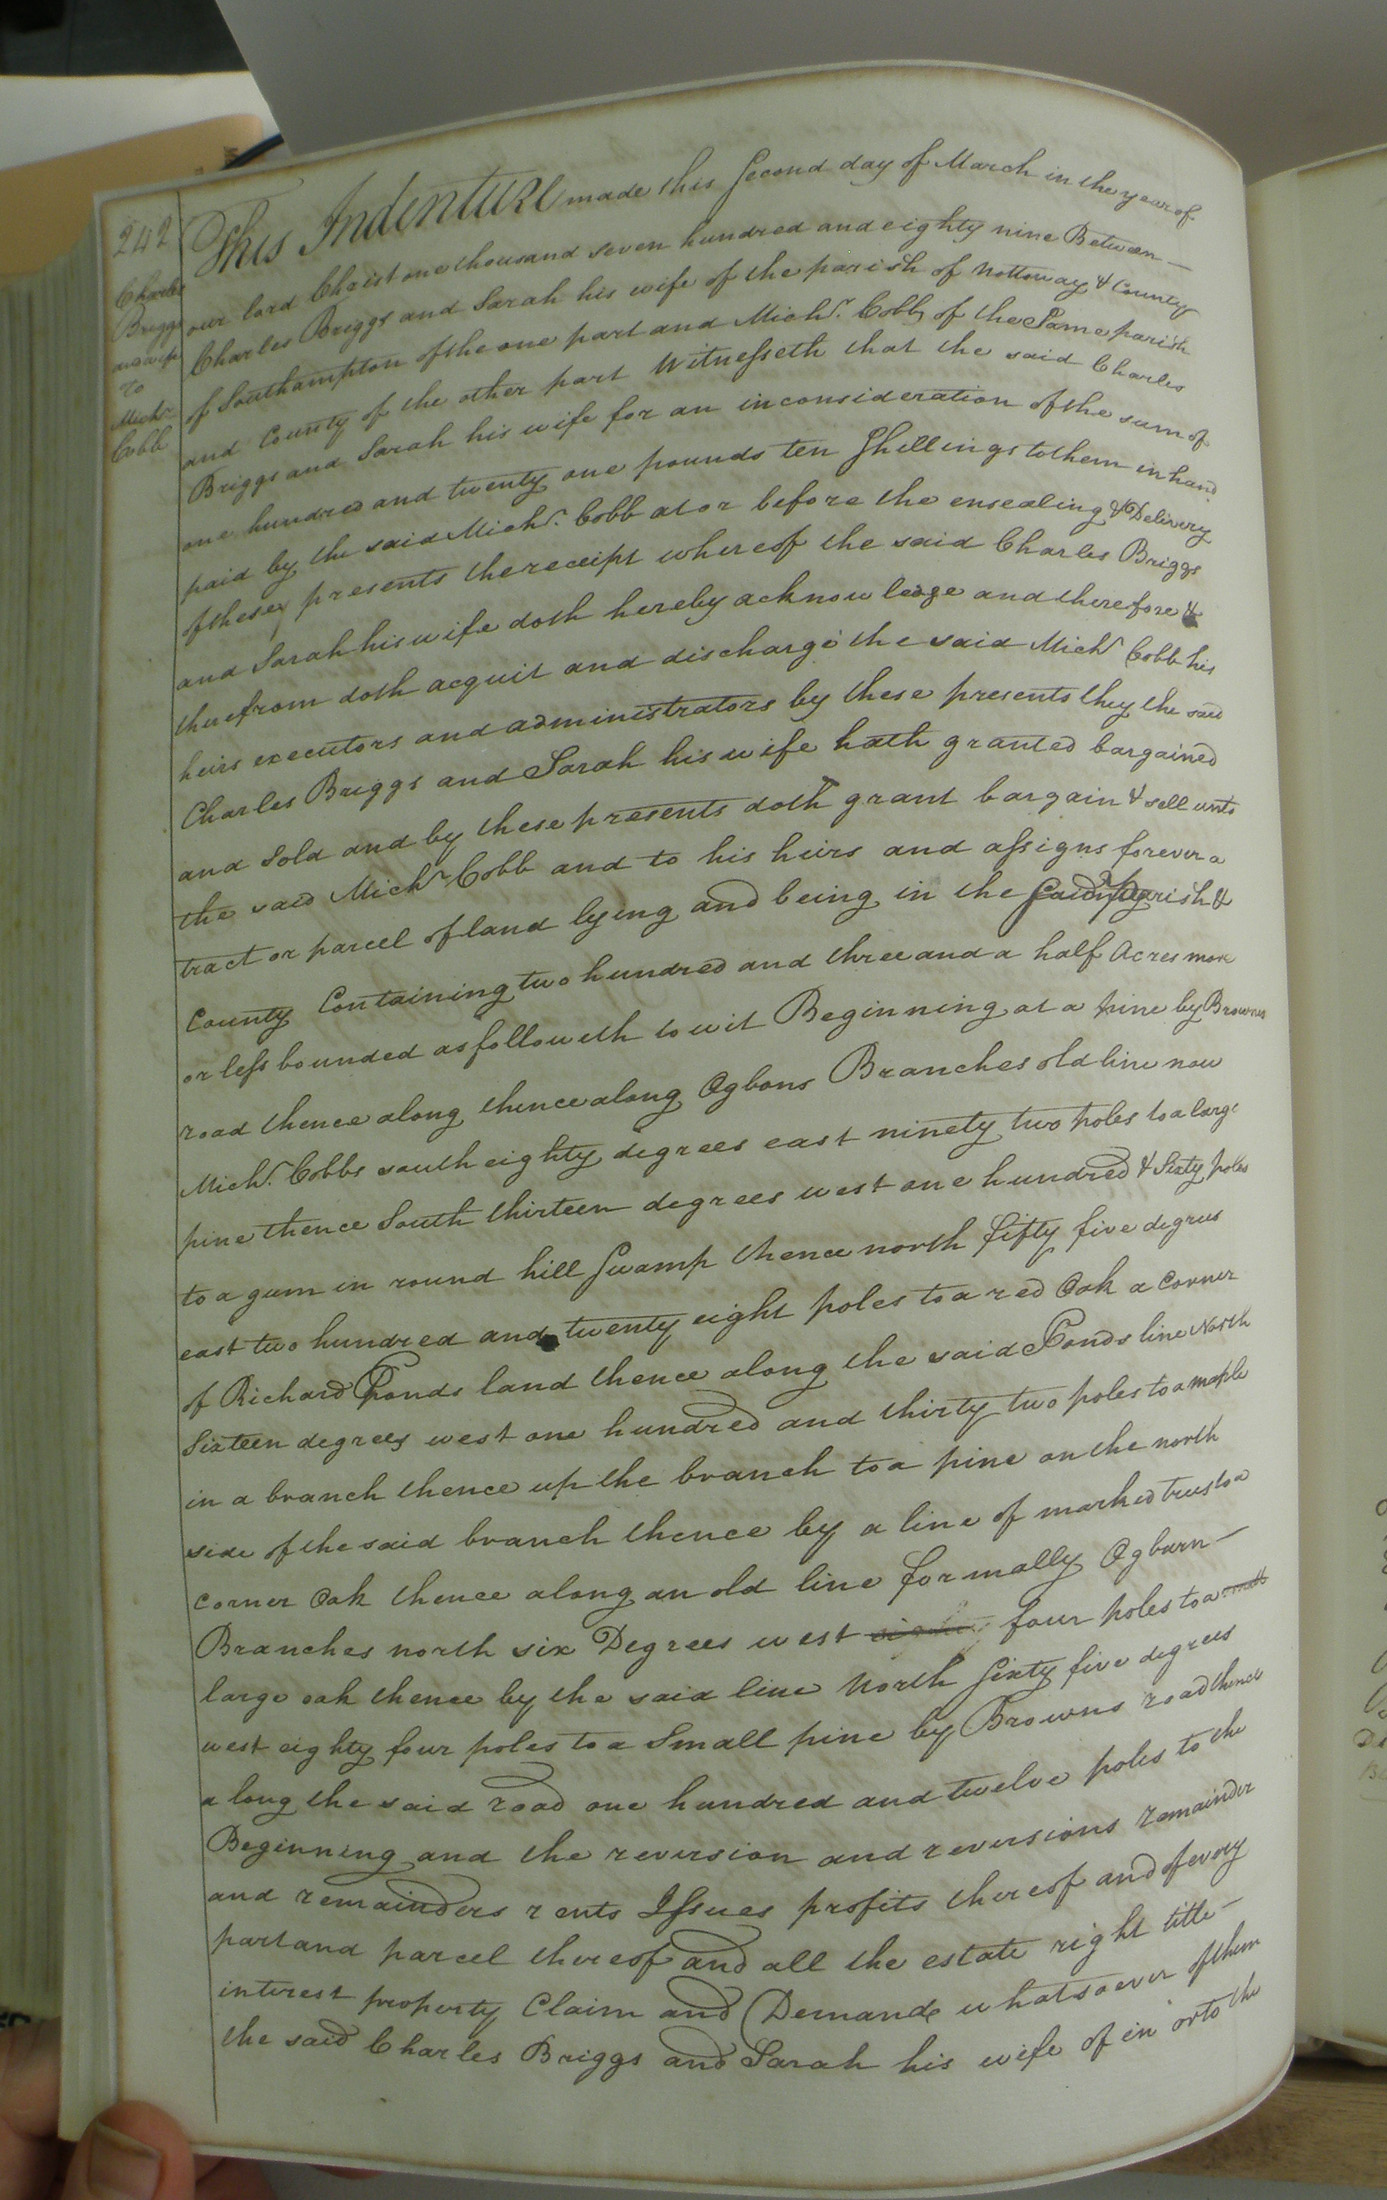 242
Charles
Briggs
and wife
to
Michl.
Cobb
This Indenture made this Second day of March in the year of
our lord Christ one thousand seven hundred and eighty nine Between
Charles Briggs and Sarah his wife of the parish of Nottoway & County
of Southampton of the one part and Michl. Cobb of the Same parish
and County of the other part Witnesseth that the said Charles
Briggs and Sarah his wife for an inconsideration of the sum of
one hundred and twenty one pounds ten Shillings to them in hand
paid by the said Michl. Cobb at or before the ensealing & Delivery
of these presents the receipt whereof the said Charles Briggs
and Sarah his wife doth hereby acknowledge and therefore &
thuefrom doth acquit and discharge the said Michl Cobb his
heirs executors and administrators by these presents they the said
Charles Briggs and Sarah his wife hath granted bargained
and Sold and by these presents doth grant bargain & sell unto
the said Michl Cobb and to his heirs and assigns forever a
tract or parcel of land lying and being in the said parish &
County Containing two hundred and three and a half Acres more
or less bounded as followeth to wit Beginning at a pine by Browns
road thence along thence along Ogbons Branches old line now
Michl. Cobbs south eighty degrees east ninety two poles to a large
pine thence South thirteen degrees west one hundred & Sixty poles
to a gum in round hill Swamp thence north fifty five degrees
east two hundred and twenty eight poles to a red Oak a Corner
of Richard Ponds land thence along the said Ponds line North
Sixteen degrees west one hundred and thirty two poles to a maple
in a branch thence up the branch to a pine on the north
side of the said branch thence by a line of marked trees to a
corner Oak thence along an old line formally Ogburn
Branches north six Degrees west four poles to a small
large oak thence by the said line North Sixty five degrees
west eighty four poles to a Small pine by Browns road thence
along the said road one hundred and twelve poles to the
Beginning and the reversion and reversions remainder
and remainders rents Issues profits thereof and of every
part and parcel thereof and all the estate right title
interest property Claim and Demande whatsoever of them
the said Charles Briggs and Sarah his wife of in or to the